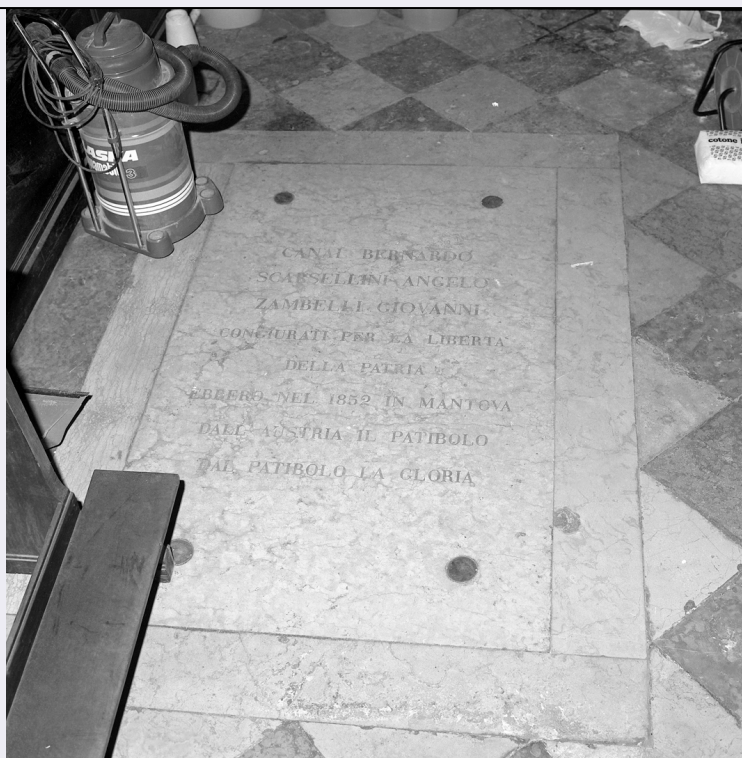 CANAL BERNARDO
SCARSELLINI ANGELO
ZAMBELLI GIOVANNI
CONGIURATI PER LA LIBERTA
DELLA PATRIA
EBBERO NEL 1852 IN MANTOVA
DALL'AUSTRIA IL PATIBOLO
DAL PATIBOLO LA GLORIA
3
cotone